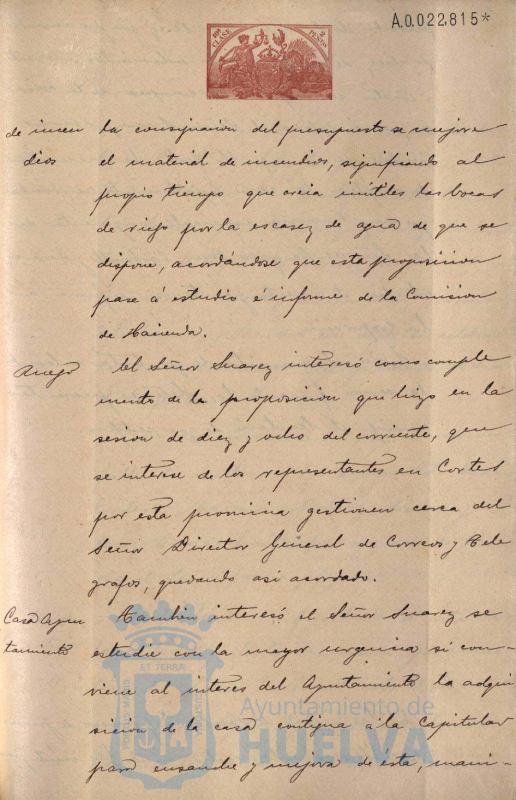 A.0.022,815*
10ª CLASE 2 PESETAS
de incen
dios
la consignación del presupuesto se mejore
el material de incendios, significando al
propio tiempo que creia inútiles las bocas
de riego por la escasez de agua de que se
dispone, acordándose que esta proposicion
pase á estudio é informe de la Comision
de Hacienda.
Ruego
El Señor Suarez interesó como comple
mento de la proposicion que hizo en la
sesion de diez y ocho del corriente, que
se interese de los representantes en Cortes
por esta provincia gestionen cerca del
Señor Director General de Correos y Tele
grafos, quedando asi acordado.
Casa Ayun
tamiento
Tambien interesó el Señor Suarez se
estudie con la mayor urgencia si con-
viene al interes del Ayuntamiento la adqui
sicion de la casa contigua á la Capitular
para ensanche y mejora de ésta, mani-
ET TERRA
Ayuntamiento de
HUELVA